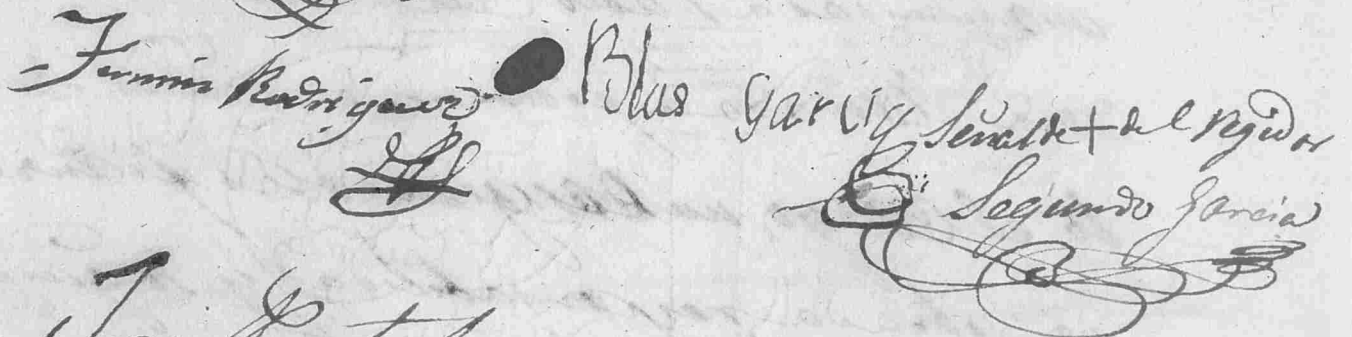 Fermin Rodriguez Blas Garcia Señal de + del Rejidor
Segundo Garcia